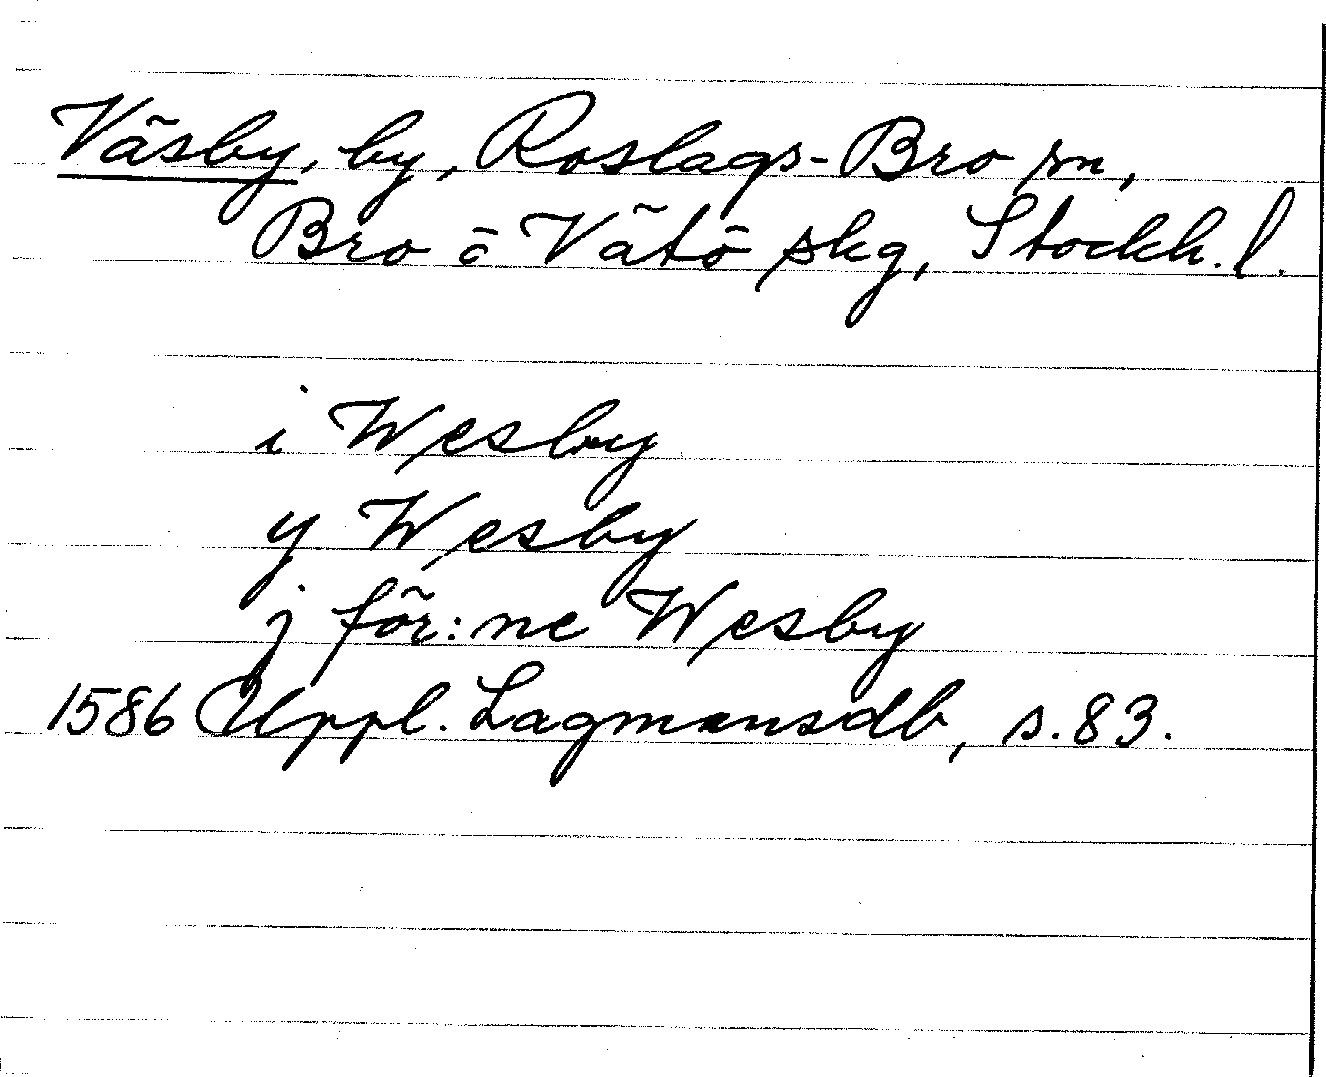 Väsby, by, Roslags-Bro sn,
Bro o Vätö skg, Stockh. l.
i Wesby
y Wesby
j för:ne Wesby
1586 Uppl. Lagmansdb, s. 83.